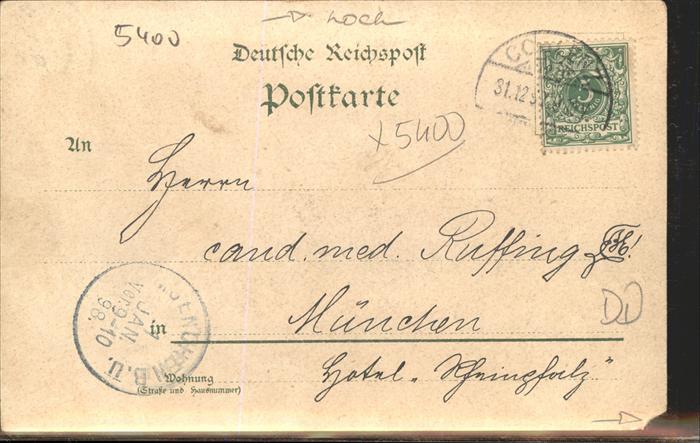 Loch
5400
Deutsche Reichspost
Postkarte
5
REICHSPOST
31.12.9
x5400
An
Herrn
cand. med. Ruffing
in München
Hotel „Rheinpfalz"
Wohnung
(Straße und Hausnummer)
MUENCHEN B.U.
1 JAN.
Vor.9-10
98.